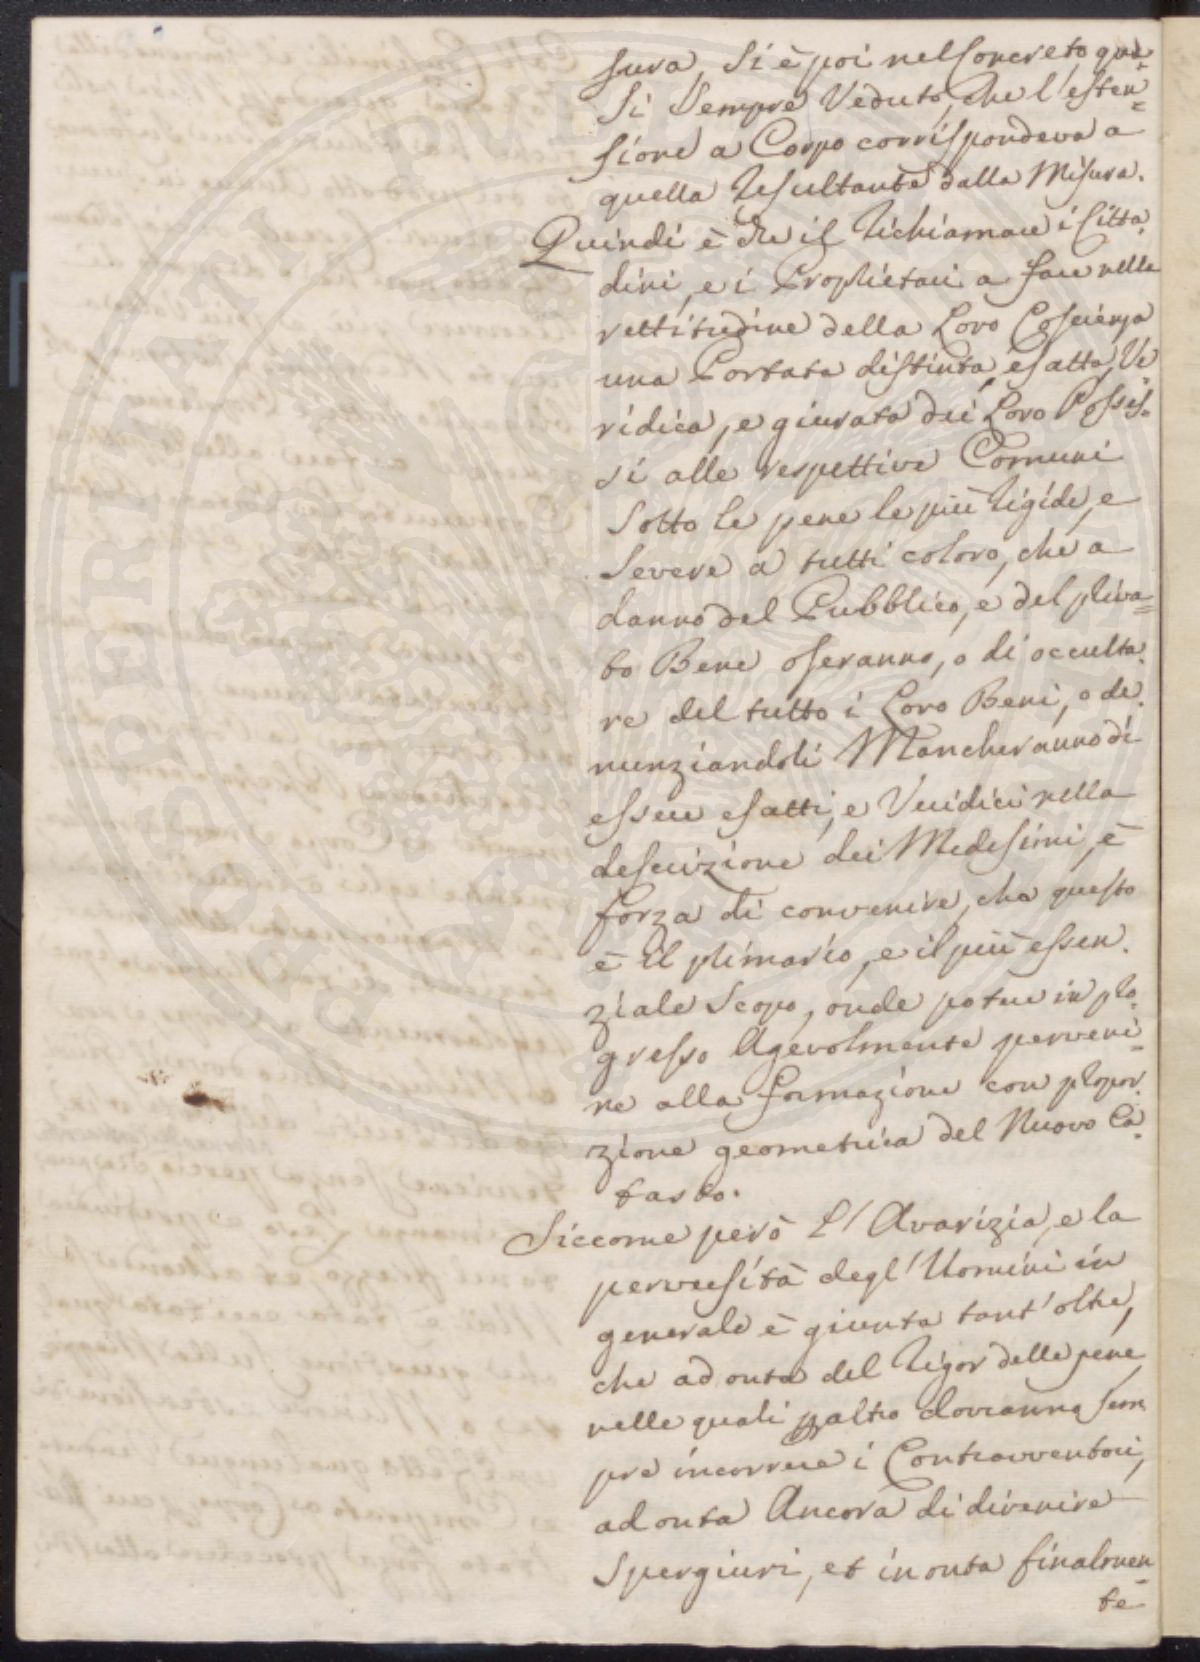 sura, si è poi nel Concreto qua-
si sempre Veduto, che l'esten=
sione a Corpo corrispondeva a
quella resultante dalla Misura.
Quindi è che il richiamare i Citta-
dini, e i Proprietari a fare nella
rettitudine della Loro Coscienza
una Portata distinta, esatta, Ve
ridica, e giurata dei Loro Posses-
si alle respettive Comuni
sotto le pene le più rigide, e
severe a tutti coloro, che a
danno del Pubblico, e del priva=
to Bene oseranno, o di occulta-
re del tutto i Loro Beni, o de-
nunziandoli Mancheranno di
essere esatti, e Veridici nella
descrizione dei Medesimi, è
forza di convenire, che questo
è il primario, e il più essen-
ziale Scopo, onde potere in pro-
gresso Agevolmente perveni=
re alla formazione con propor-
zione geometrica del Nuovo Ca-
tasto.
Siccome però L'Avarizia, e la
perversità degl'Uomini in
generale è giunta tant'oltre,
che ad onta del rigor delle pene
nelle quali per altro dovranno sem
pre incorrere i Contravventori,
ad onta Ancora di divenire
Spergiuri, et in onta finalmen
te
PROSPERITATI PUBLICAE